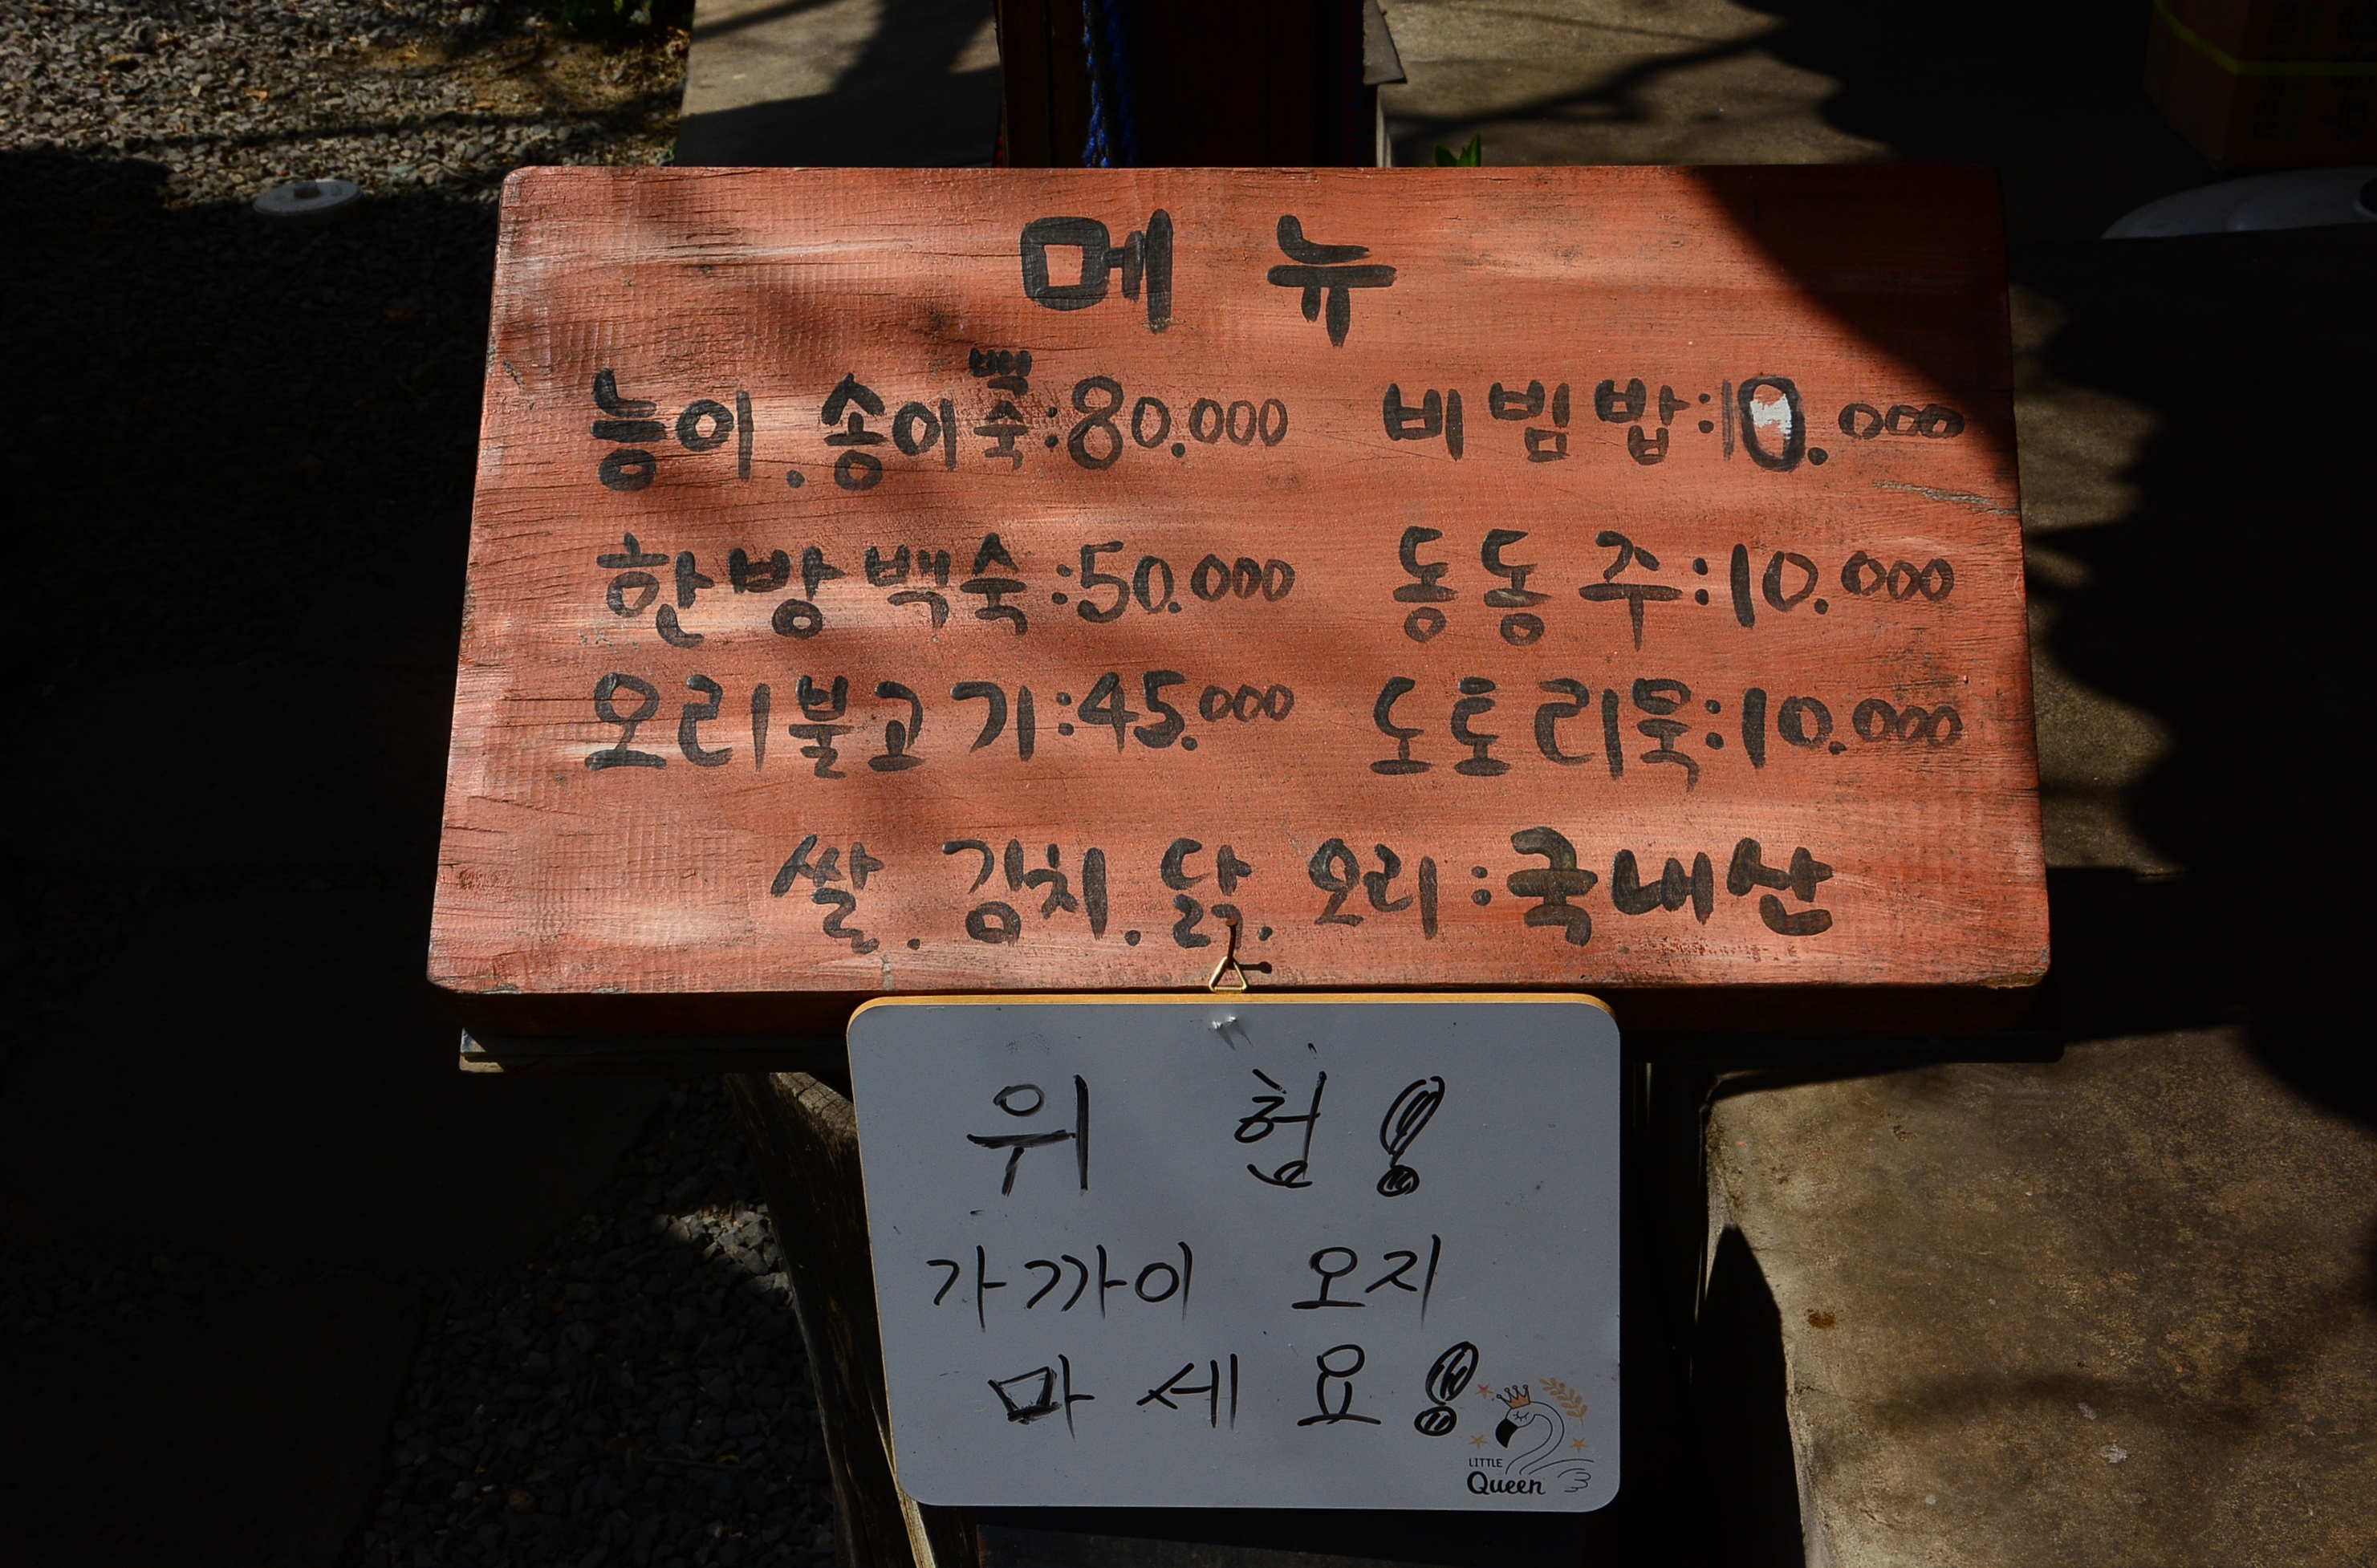 메뉴
능이.송이백숙:80.000 비빔밥:10.000
한방백숙:50.000 동동주:10.000
오리불고기:45.000 도토리묵:10.000
쌀.김치.닭.오리:국내산
위험!
가까이 오지
마세요!
LITTLE
Queen